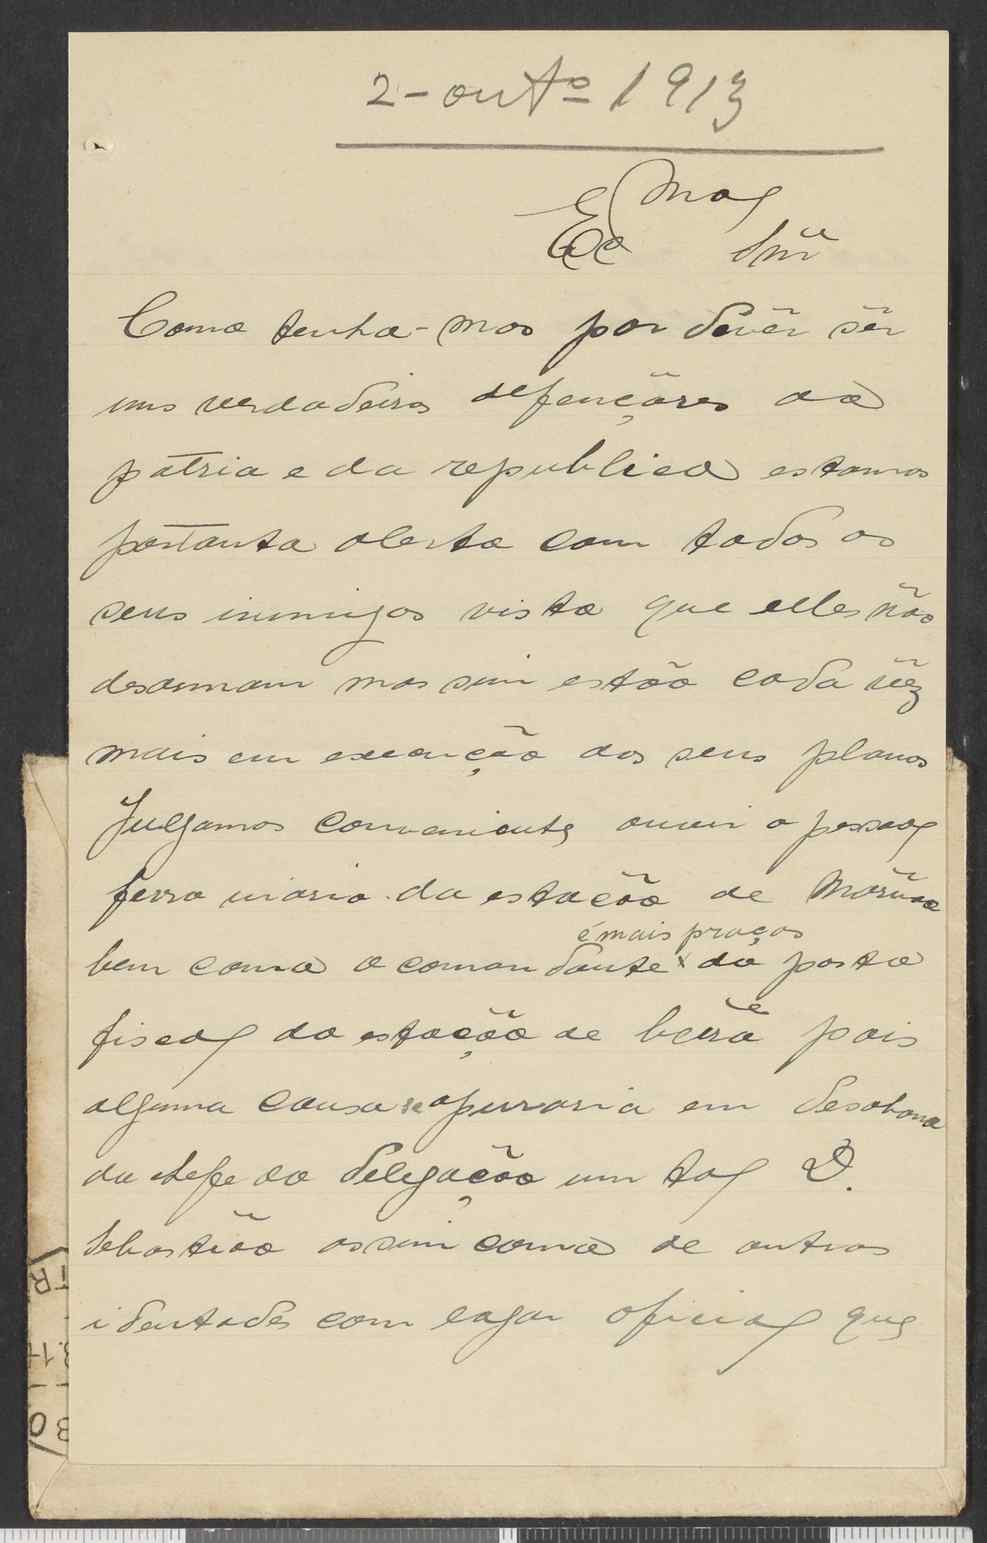 2-outº 1913
Como tenha-mos por devêr sêr
uns verdadeiros defençôres da
pátria e da republica estamos
portanto alerta com todos os
seus inimigos visto que elles não
desarmam mas sim estão cada vêz
mais em execução dos seus planos
Julgamos conveniente ouvir o pessoal
ferro viario da estação de Marvão
é mais praças
bem como o comandante x do posto
fiscal da estação de beirã pois
alguma cousa se apurraria em desabono
do chefe da delegação um tal D.
Sebastião assim como de outras
identades com lugar oficial que
TR